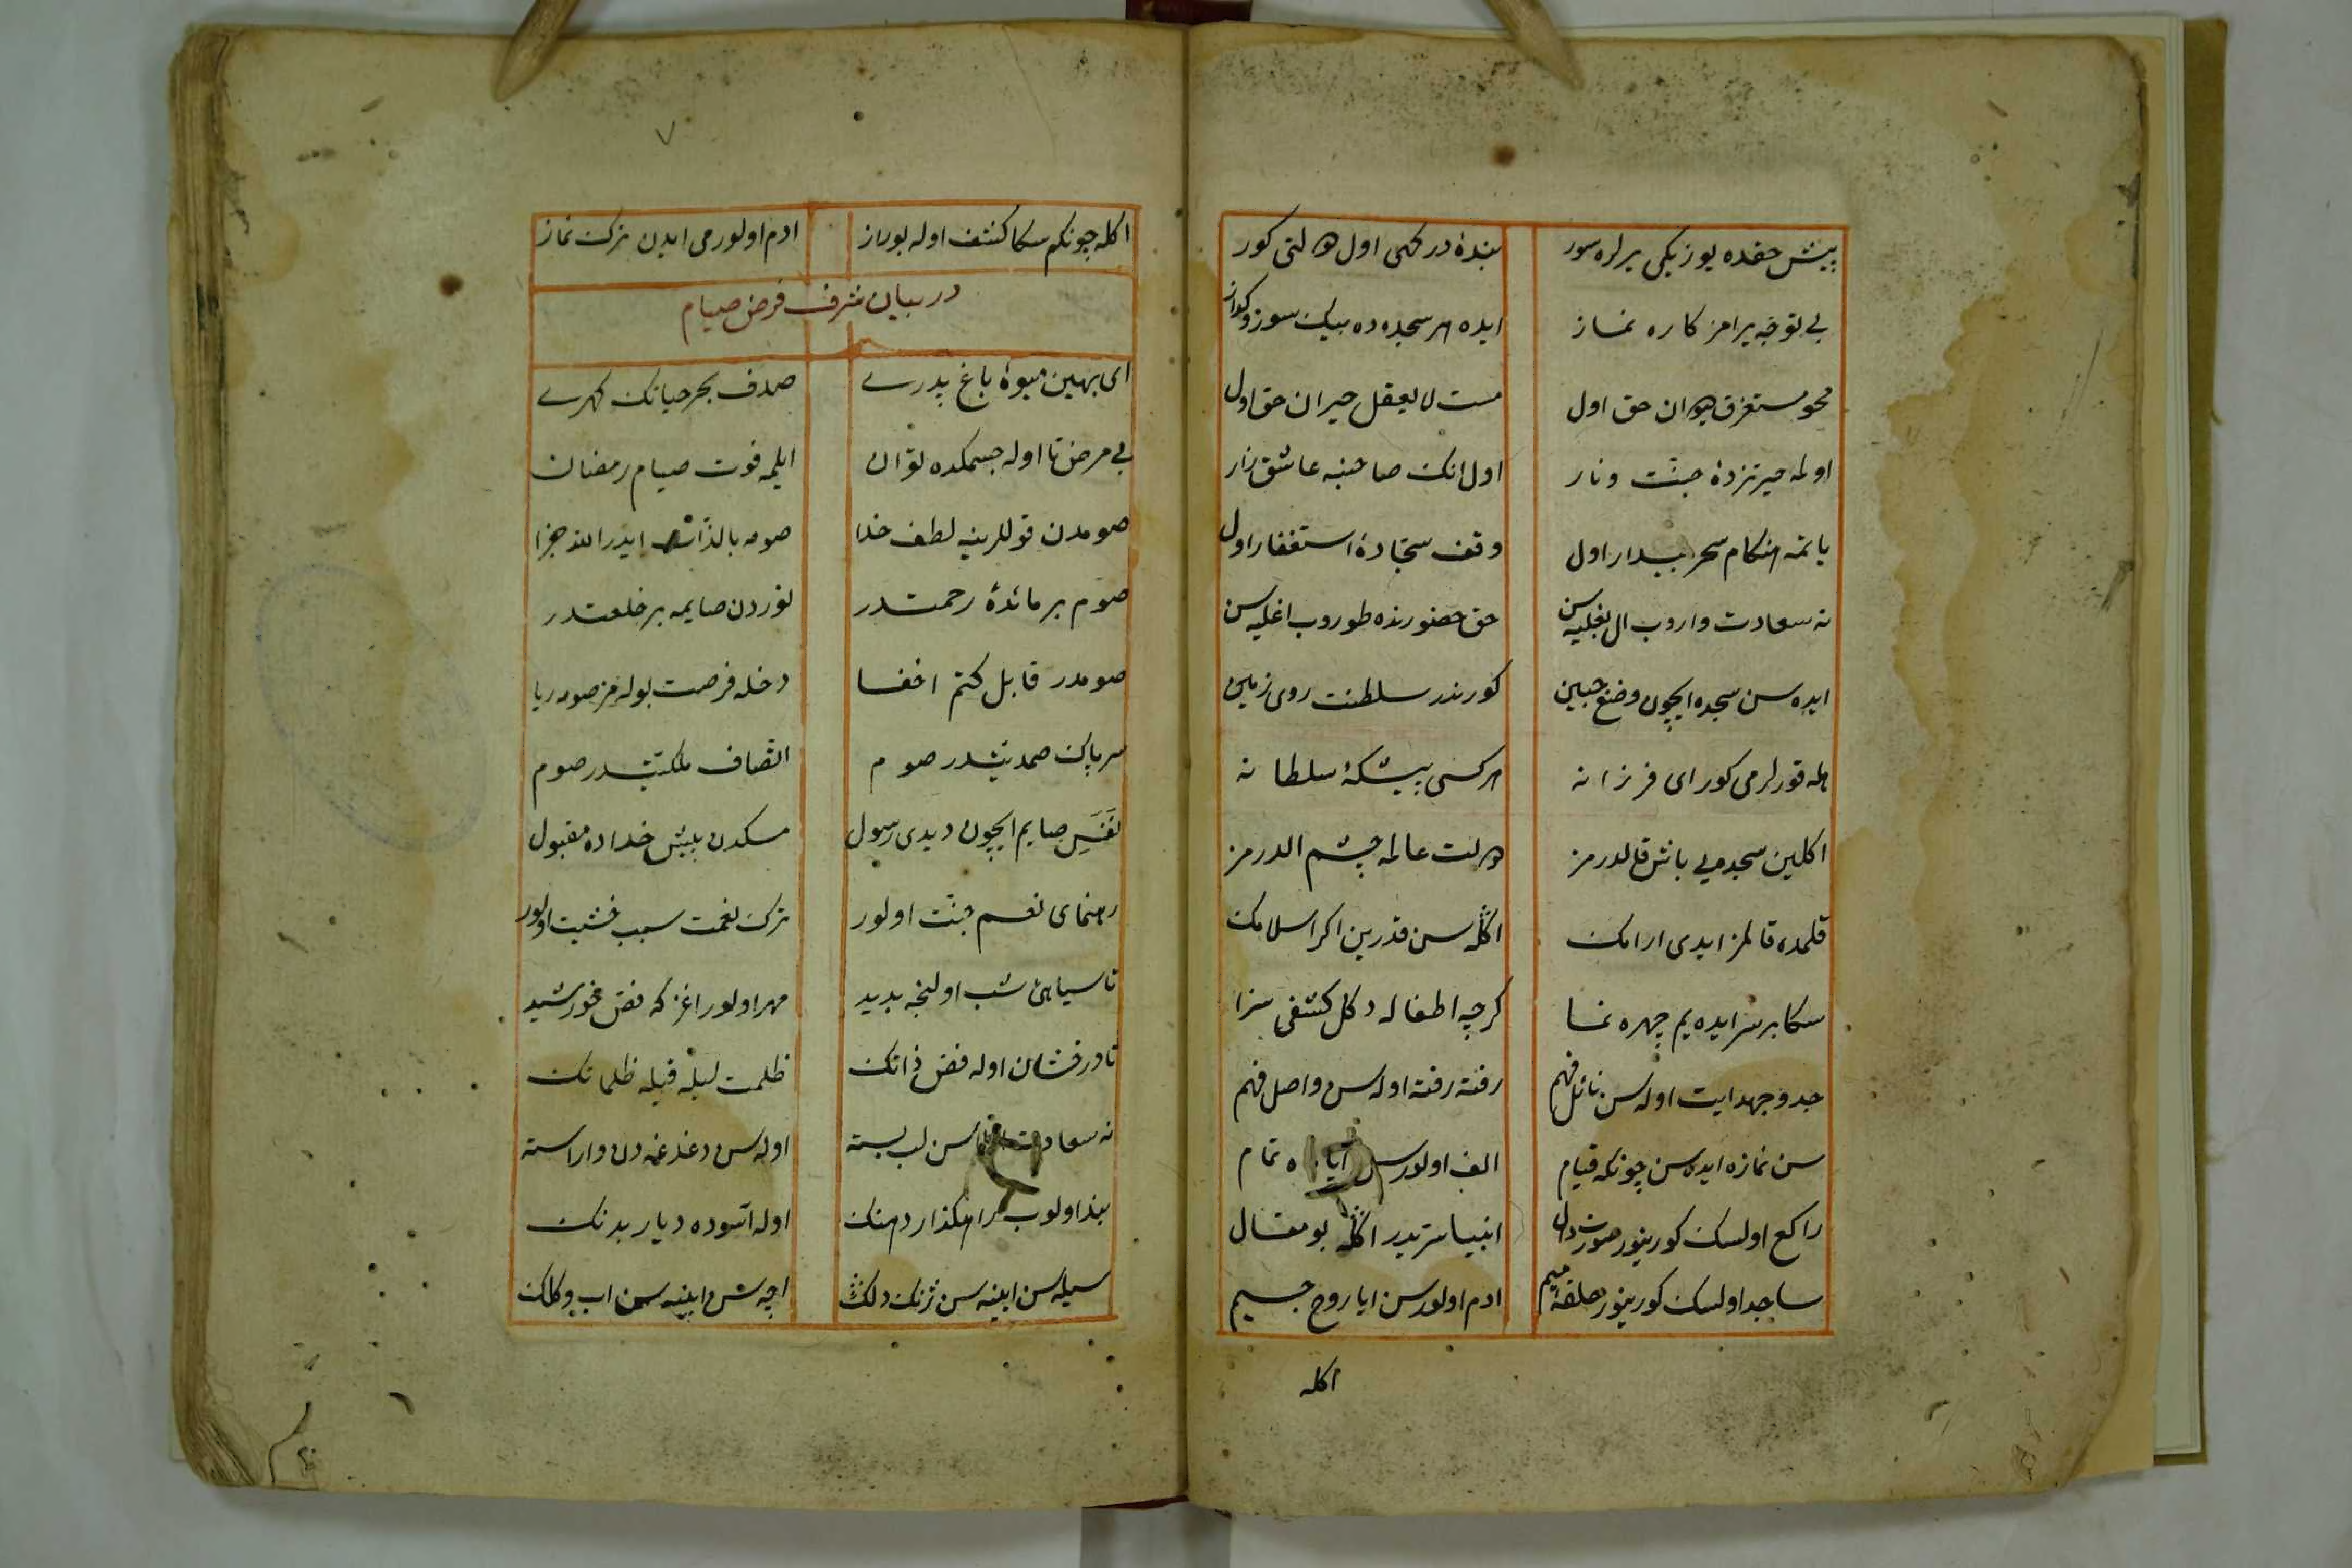 پیش حقده یوزیکی یرلره سور بندهٔ درکهی اول دولتی کور
بی توجه یرامز کاره نماز ایده هر سجده ده بیک سوز و کداز
محو مستغرق دیوان حق اول مست لا یعقل حیران حق اول
اولمه حیرتزدهٔ جنت و نار اول انک صاحبنه عاشق زار
یاتمه هنکام سحر بیدار اول وقف سجادهٔ استغفار اول
نه سعادت واروب ال بغلیه سن حق حضورنده طوروب اغلیه سن
ایده سن سجده ایچون وضع جبین کورندر سلطنت روی زمین
هله قورلرمی کور ای فرزانه هرکسی پیشکه سلطانه
اکلین سجده یی باش قالدرمز دولت عالمه چشم الدرمز
قلمده قالمز ایدی ارامک اکله سن قدرین اکر اسلامک
سکا بر سر ایده یم چهره نما کرچه اطفاله دکل کشفی سزا
جد و جهد ایت اوله سن نائل فهم رفته رفته اوله سن واصل فهم
سن نمازه ایده سن چونکه قیام الف اولورسن تمام
راکع اولسک کورینور صورت دال انبیا سریدر اکله بو مقال
ساجد اولسک کورینور حلقهٔ میم ادم اولورسن ایا روح جسیم
اکله
۷
اکله چونکم سکا کشف اوله بو راز ادم اولورمی ایدن ترک نماز
در بیان شرف فرض صیام
ای بهین میوهٔ باغ پدری صدف بحر حیاتک کهری
بی مرض تا اوله جسمکده توان ایلمه فوت صیام رمضان
صومدن قوللرینه لطف خدا صومه بالذات ایدر الله جزا
صوم بر مائدهٔ رحمتدر نوردن صایمه بر خلعتدر
صومدر قابل کتم اخفا دخله فرصت بوله مز صومه ریا
سر پاک صمدیتدر صوم اتصاف ملکیتدر صوم
نفس صایم ایچون دیدی رسول مسکدن پیش خداده مقبول
رهنمای نعم جنت اولور ترک نعمت سبب خشیت اولور
تا سیاهئ شب اولنجه بدید مهر اولور اغزکه فض خورشید
تا درخشان اوله فض ذاتک ظلمت لیله قیله ظلماتک
نه سعادت سن لب بسته اوله سن دغدغه دن وارسته
بند اولوب رهکذار دهنک اوله آسوده دیار بدنک
سیله سن اینه سن ژنک دلک اچه سن اینه سن اب و کلک